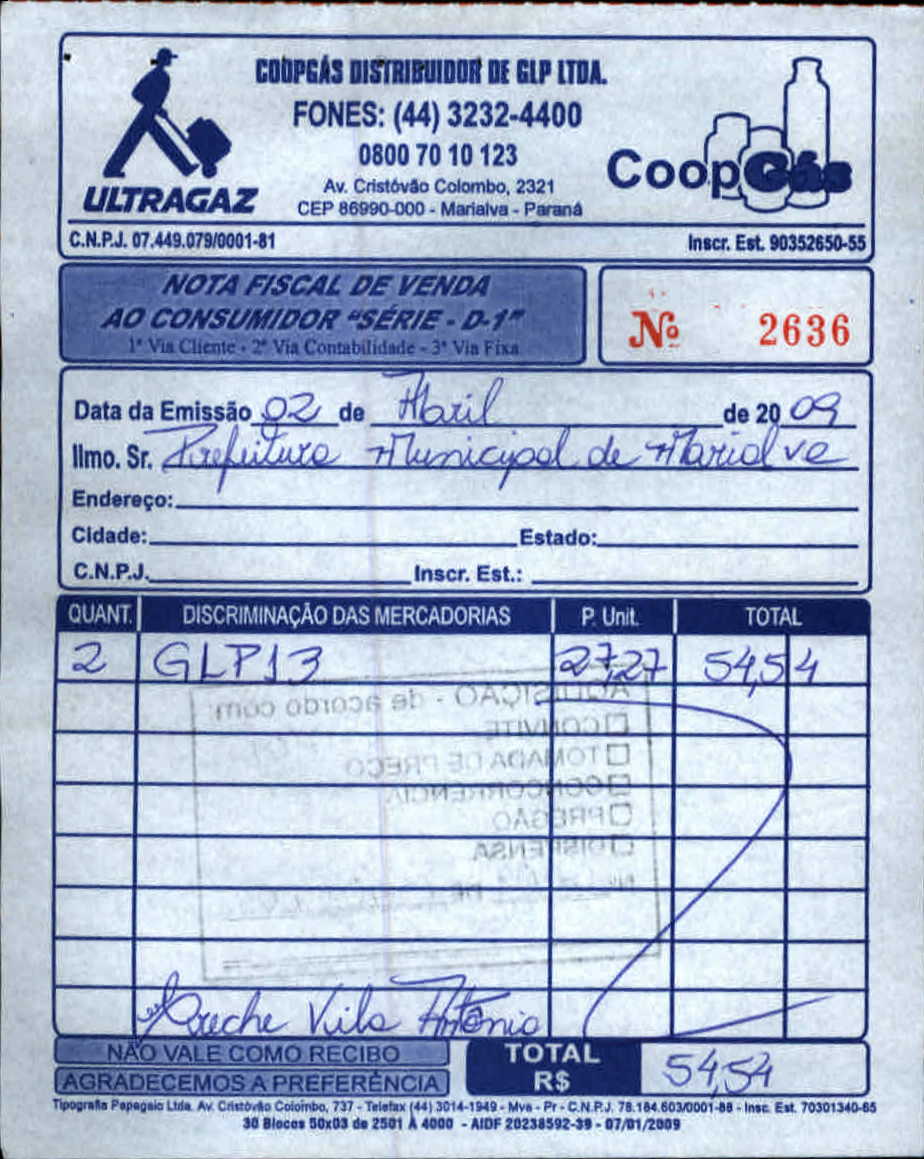 COOPGÁS DISTRIBUIDOR DE GLP LTDA.
FONES: (44) 3232-4400
0800 70 10 123
Av. Cristóvão Colombo, 2321
CEP 86990-000 - Marialva - Paraná
ULTRAGAZ
CoopGás
C.N.P.J. 07.449.079/0001-81 Inscr. Est. 90352650-55
NOTA FISCAL DE VENDA
AO CONSUMIDOR "SÉRIE - D-1"
1ª Via Cliente - 2ª Via Contabilidade - 3ª Via Fixa
Nº 2636
Data da Emissão 02 de Abril de 20 09
Ilmo. Sr. Prefeitura Municipal de Marialva
Endereço:
Cidade: Estado:
C.N.P.J. Inscr. Est.:
QUANT. DISCRIMINAÇÃO DAS MERCADORIAS P. Unit. TOTAL
2 GLP13 27,27 54,54
AQUISIÇÃO - de acordo com:
CONVITE
TOMADA DE PREÇO
CONCORRENCIA
PREGÃO
DISPENSA
Creche Vila Antônio
NÃO VALE COMO RECIBO
AGRADECEMOS A PREFERÊNCIA
TOTAL R$ 54,54
Tipografia Papagaio Ltda. Av. Cristóvão Colombo, 737 - Telefax (44) 3014-1949 - Mva - Pr - C.N.P.J. 78.184.603/0001-88 - Insc. Est. 70301340-65
30 Blocos 50x03 de 2501 À 4000 - AIDF 20238592-39 - 07/01/2009